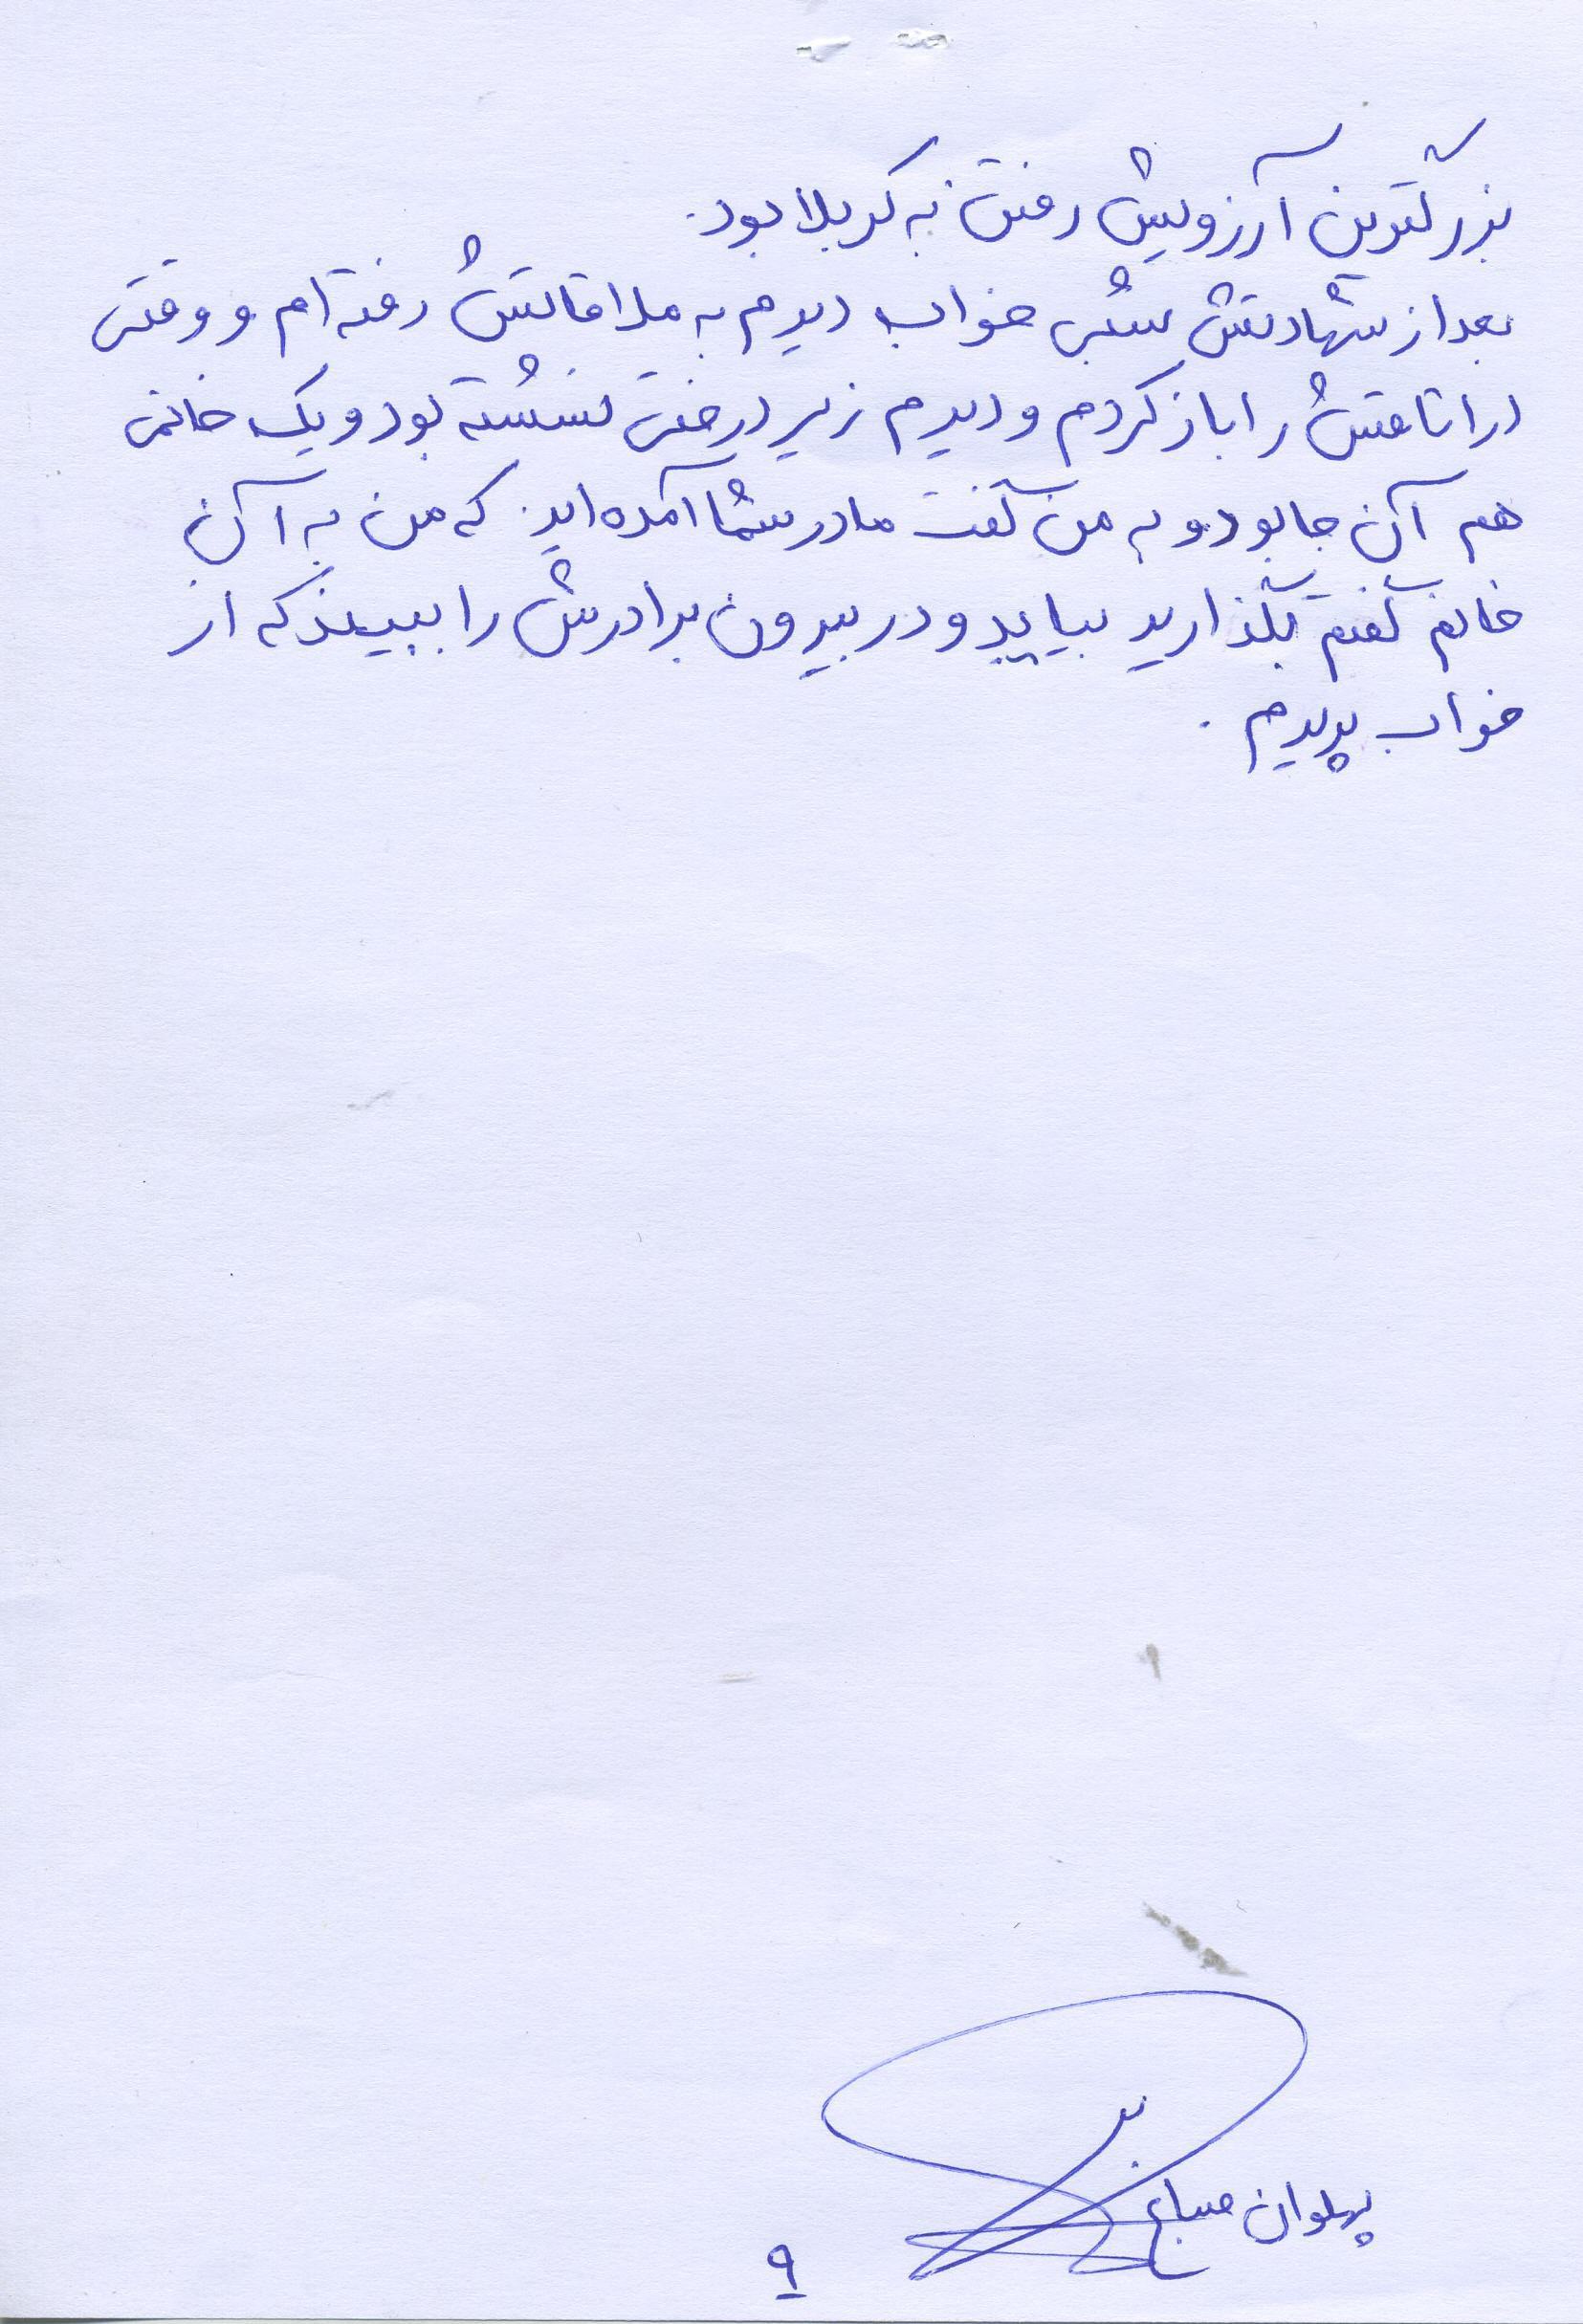 بزرگترین آرزویش رفتن به کربلا بود.
بعد از شهادتش شبی خواب دیدم به ملاقاتش رفته ام و وقتی
در اتاقش را باز کردم و دیدم زیر درختی نشسته بود و یک خانمی
هم آن جا بود و به من گفت مادر شما آمده اید. که من به آن
خانم گفتم بگذارید بیاید و در بیرون برادرش را ببیند که از
خواب پریدم.
پهلوان صباغ
۹